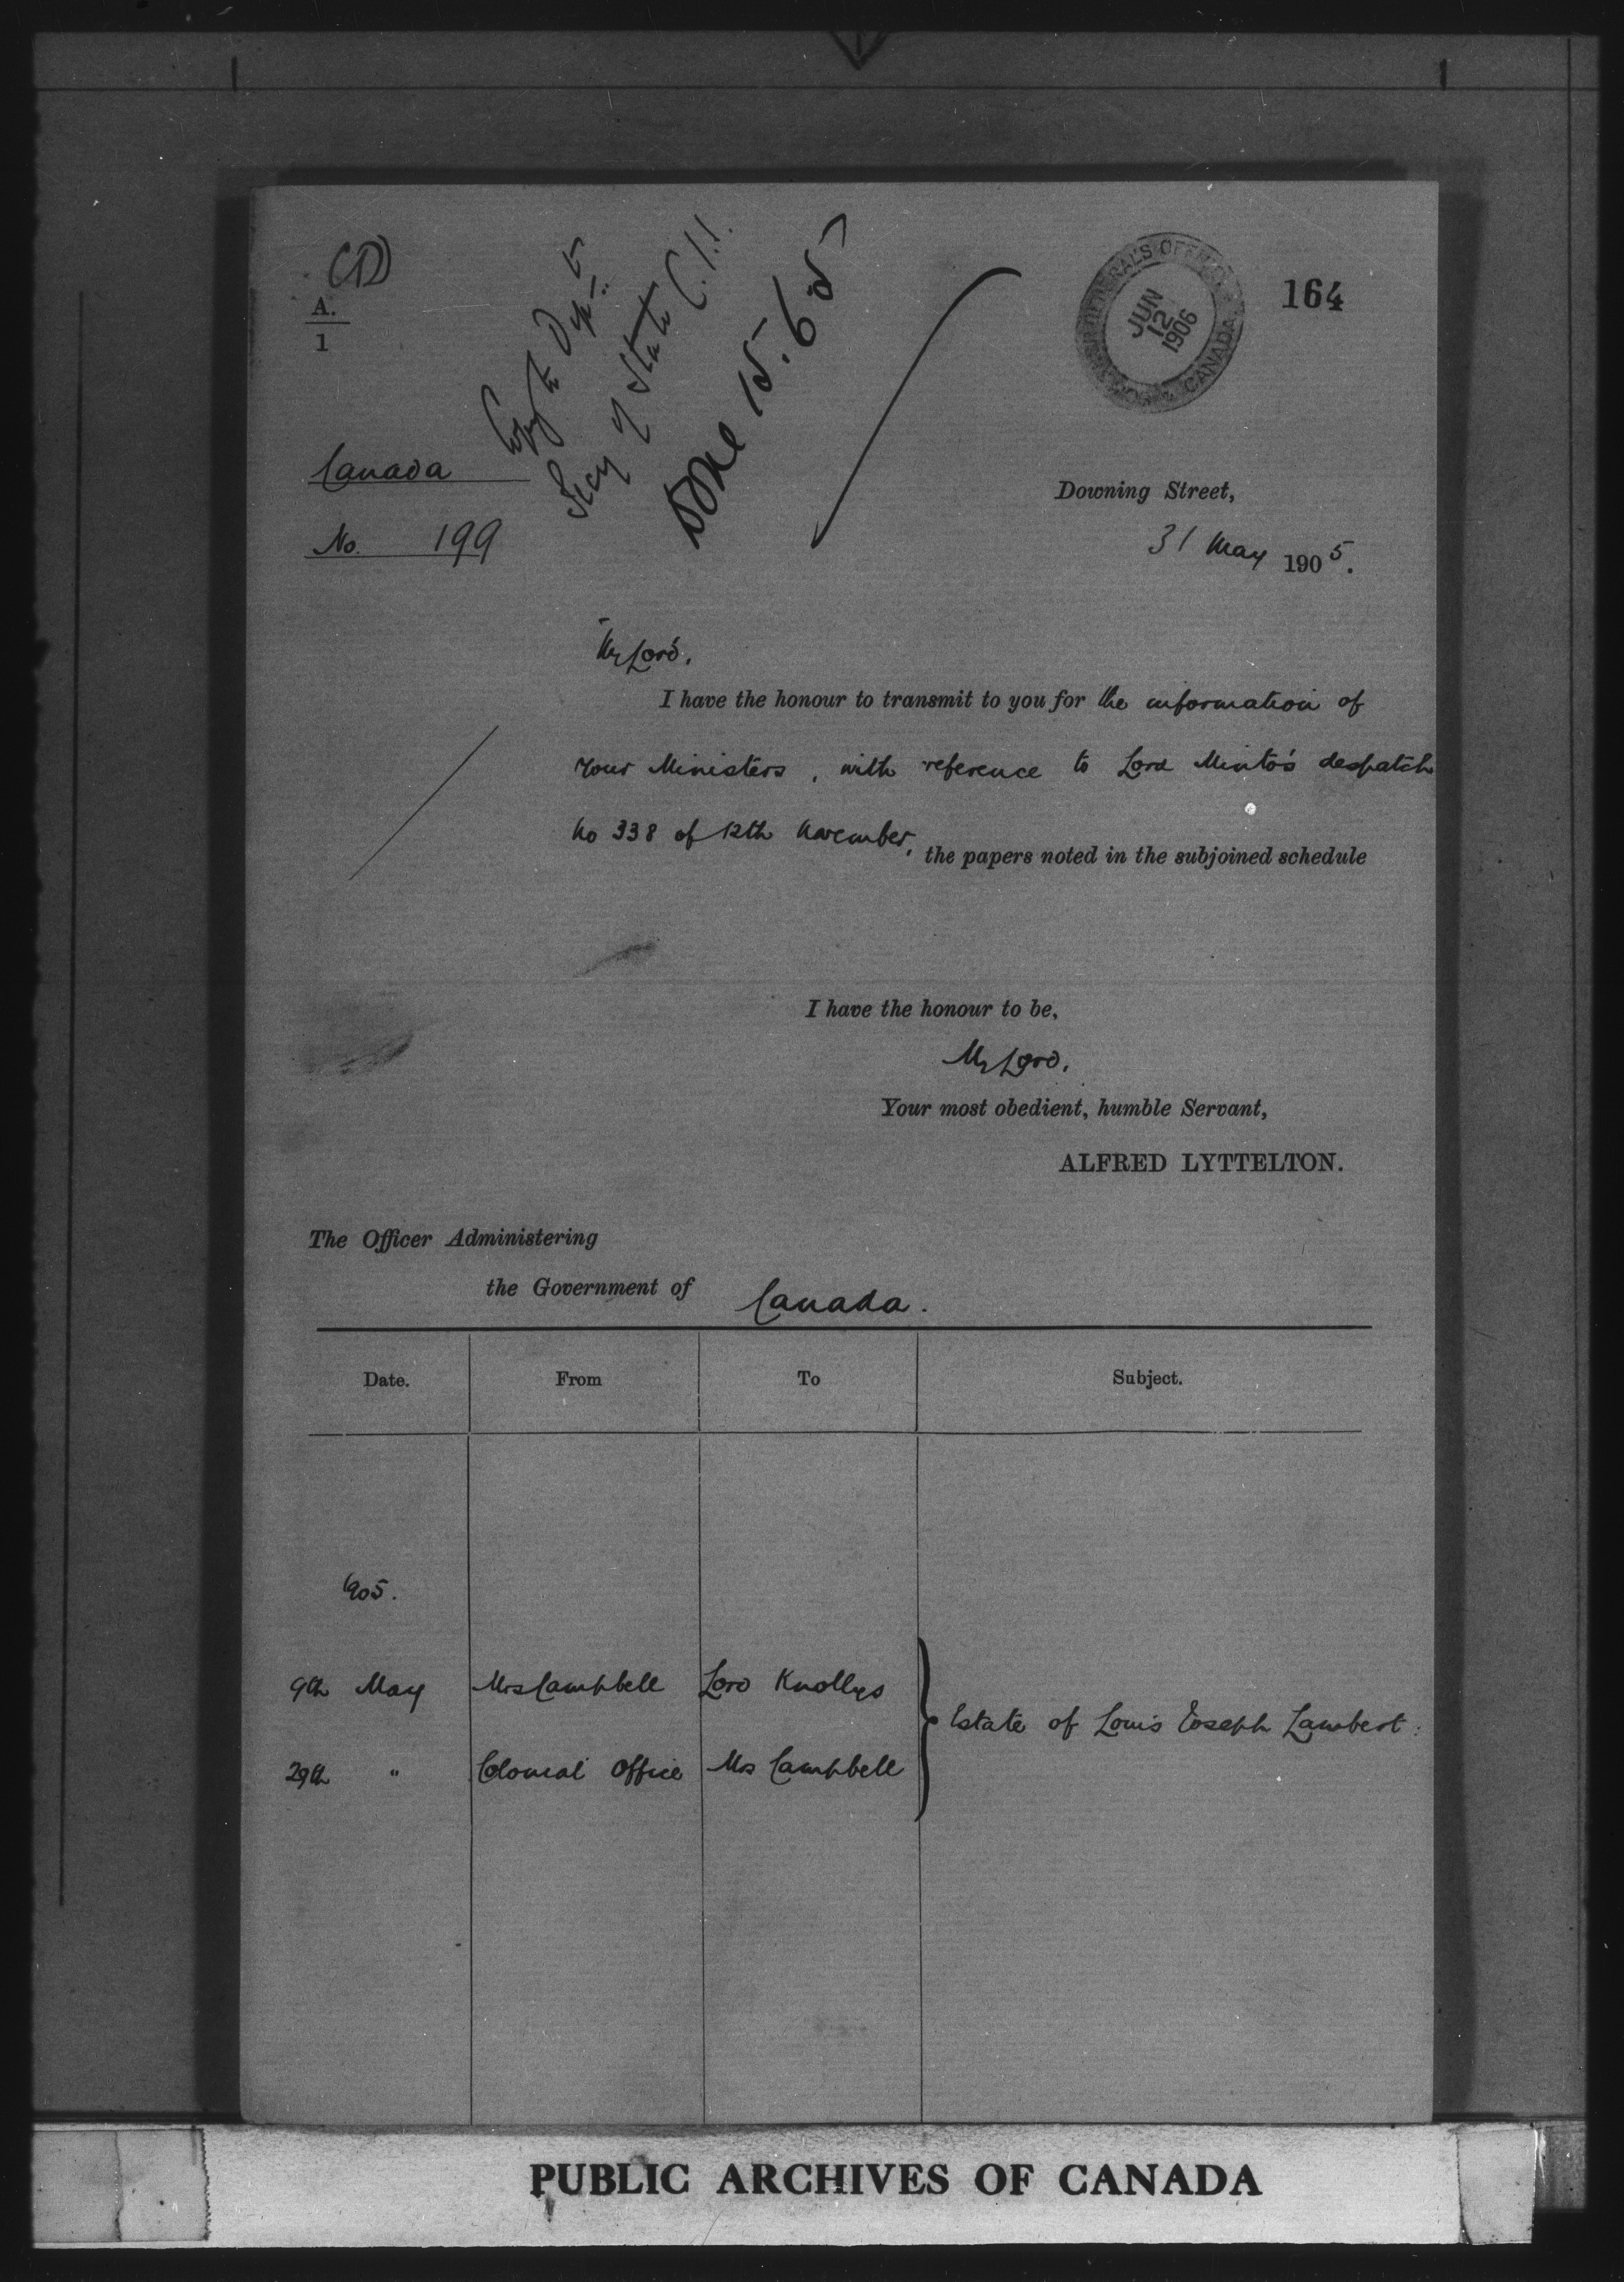 (D)
A.
1
Copy to Dept
Secy of State
Done 15.6.05
GOVERNOR GENERAL'S OFFICE
CANADA
JUN
12
1906
164
Canada
No. 199
Downing Street,
31 May 1905.
My Lord,
I have the honour to transmit to you for the information of
your Ministers, with reference to Lord Minto's despatch
No 338 of 12th November, the papers noted in the subjoined schedule
I have the honour to be,
My Lord,
Your most obedient, humble Servant,
ALFRED LYTTELTON.
The Officer Administering
the Government of Canada.
Date. From To Subject.
1905.
9th May Mrs Campbell Lord Knollys
Estate of Louis Joseph Lambert.
29th " Colonial Office Mrs Campbell
PUBLIC ARCHIVES OF CANADA